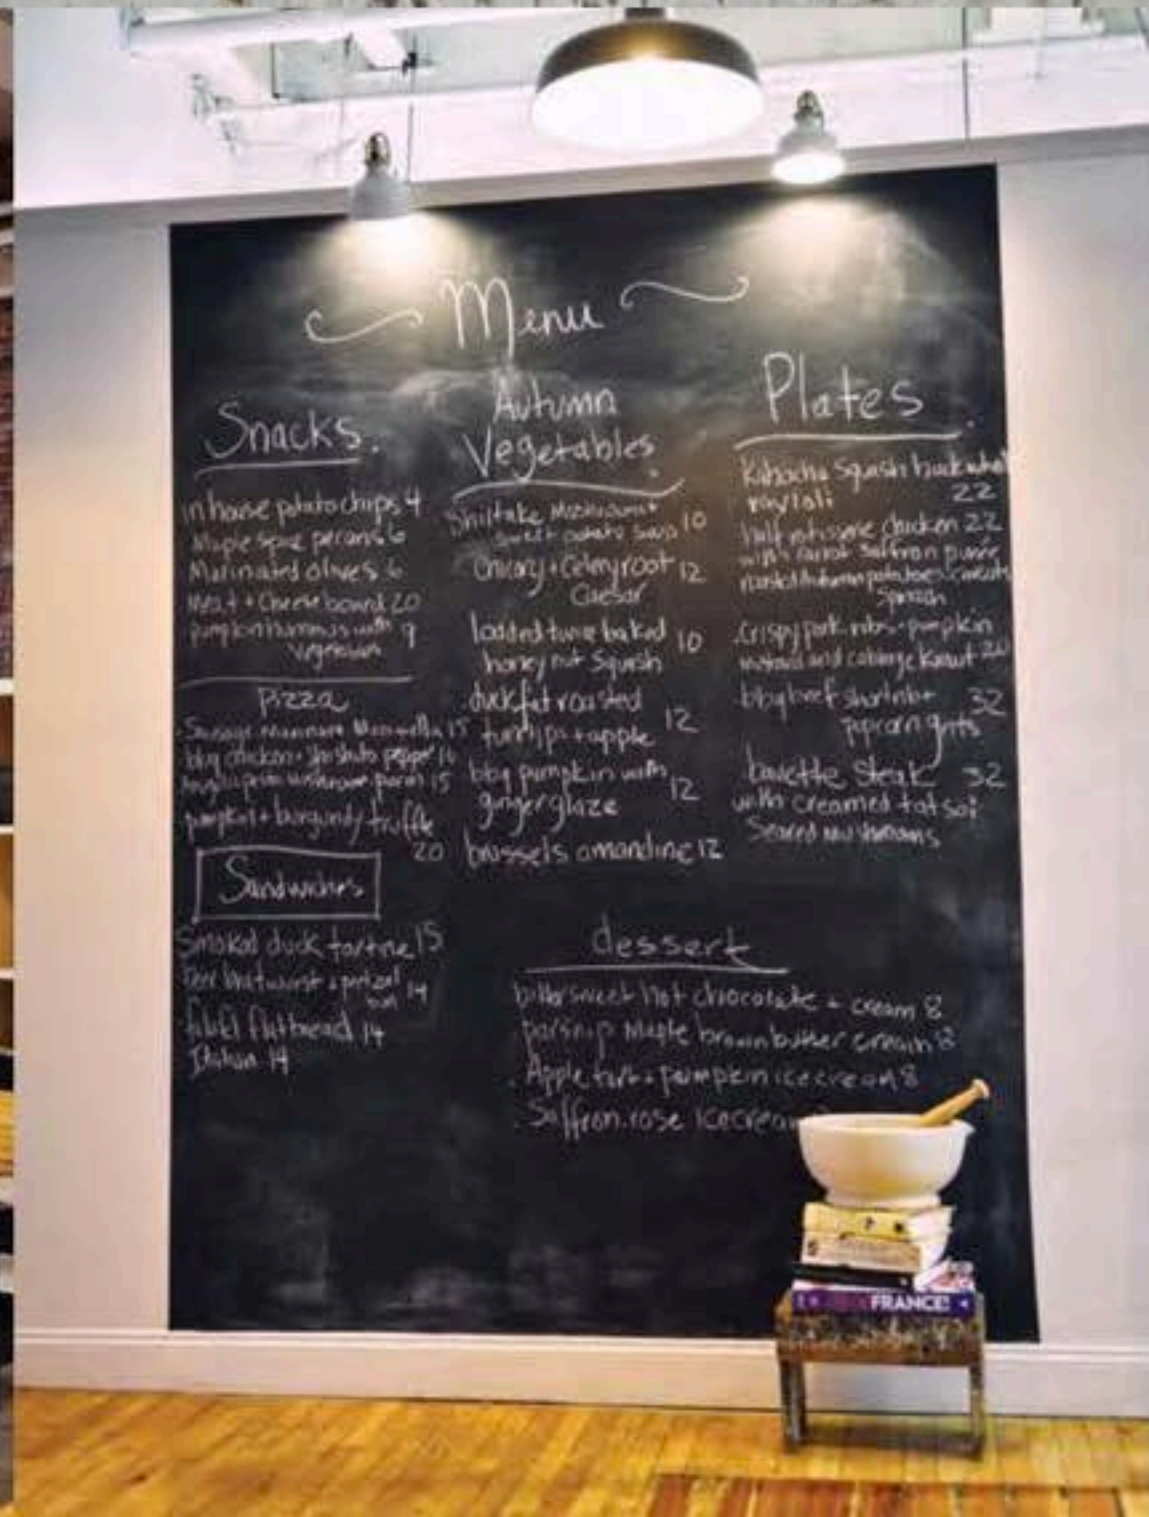 Menu
Snacks.
in house potato chips 4
Maple spice pecans 6
Marinated olives 6
Meat + Cheese board 20
pumpkin hummus with 9
vegetables
Pizza
Sausage Mozzarella 15
bbq chicken + shishito pepper
parm 15
pumpkin + burgundy truffle
20
Sandwiches
Smoked duck tartine 15
Beer bratwurst + pretzel
bun 14
falafel flatbread 14
Italian 14
Autumn
Vegetables
Shiitake Mushroom +
sweet potato soup 10
Chicory + Celery root 12
Caesar
loaded twice baked 10
honey nut Squash
duck fat roasted
turnips + apple 12
bbq pumpkin with
ginger glaze 12
brussels amandine 12
Plates.
Kabocha Squash buckwheat
raviloli 22
half rotisserie chicken 22
with carrot saffron purée
roasted Autumn potatoes
Spinach
Crispy pork ribs - pumpkin
mustard and cabbage Kraut
bbq beef short rib + 32
popcorn grits
bavette Steak 32
with creamed tatsoi
Seared mushrooms
dessert
bittersweet hot chocolate + cream 8
parsnip Maple brown butter cream 8
Apple tart + pumpkin ice cream 8
Saffron. rose icecream
FRANCE!